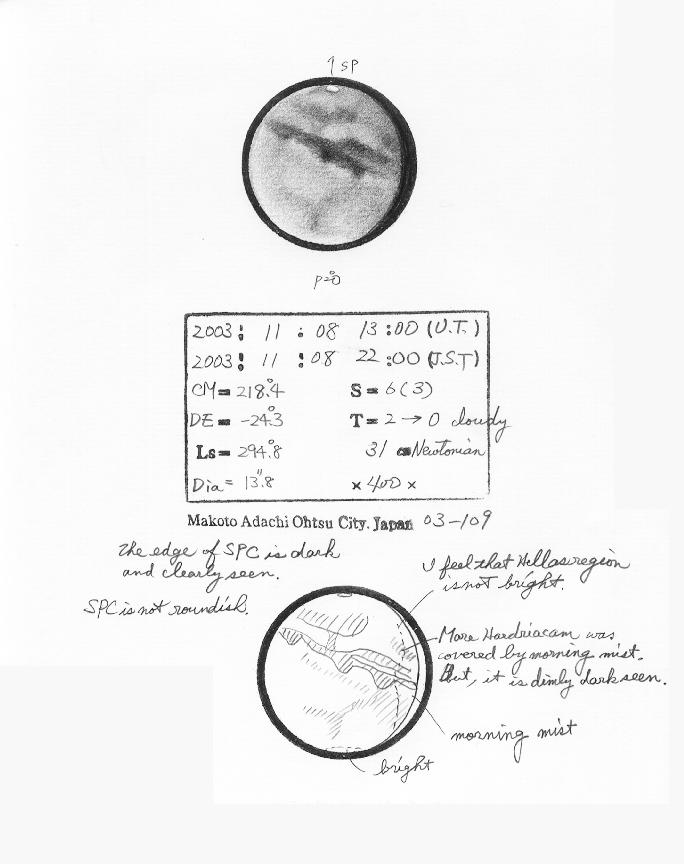 ↑ SP
P=0°
2003: 11 : 08 13:00 (U.T.)
2003: 11 : 08 22:00 (J.S.T)
CM= 218.°4 S= 6(3)
DE= -24.°3 T= 2 → 0 cloudy
Ls= 294.°8 31 cm Newtonian
Dia= 13."8 × 400 ×
Makoto Adachi Ohtsu City. Japan 03-109
The edge of SPC is dark
and clearly seen.
SPC is not roundish.
I feel that Hellas region
is not bright.
Mare Hardriacam was
covered by morning mist.
But, it is dimly dark seen.
morning mist
bright